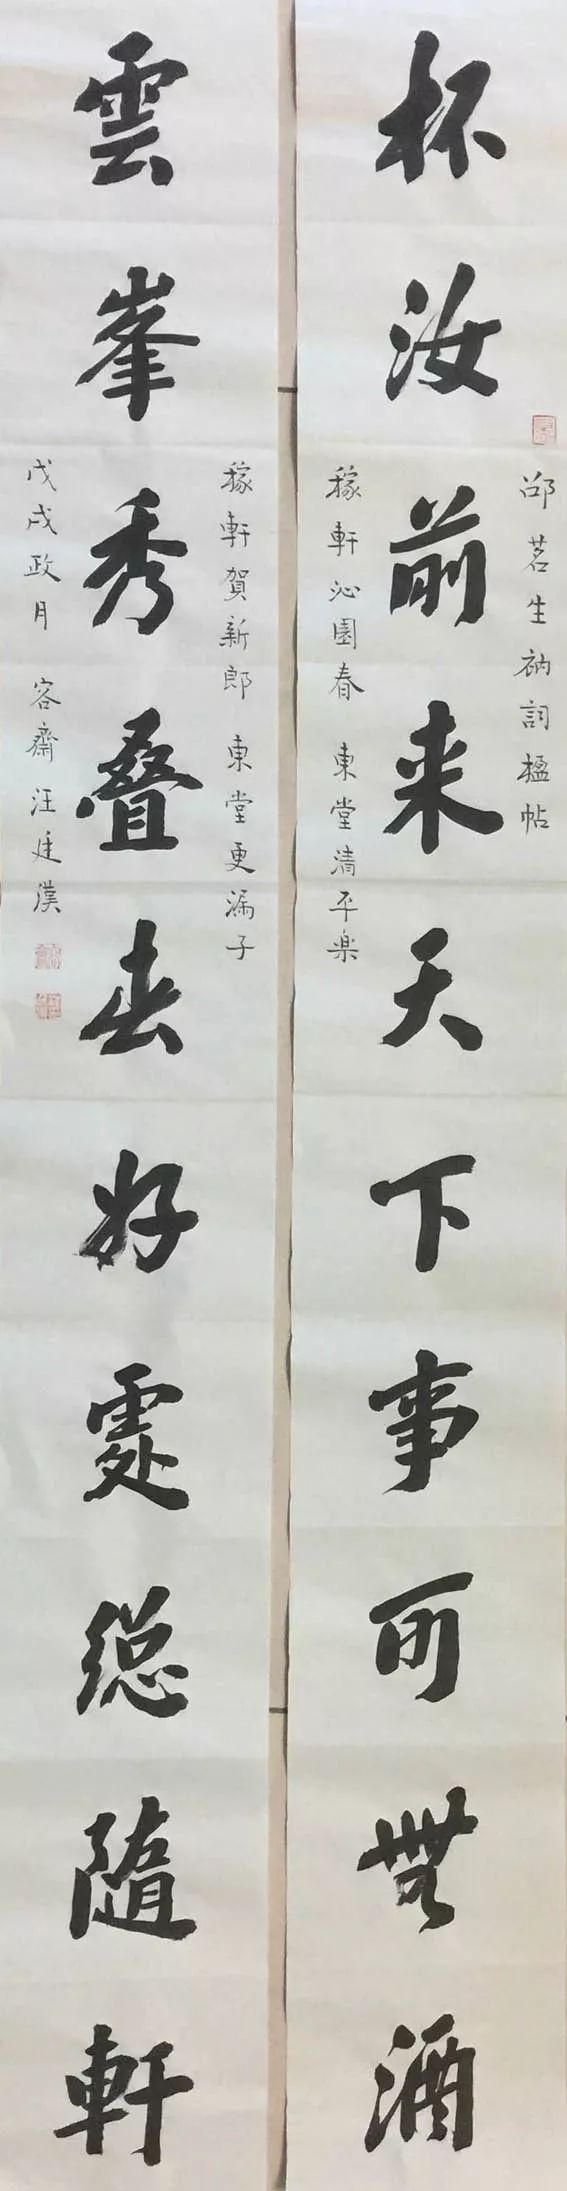 邵茗生衲詞楹帖
杯汝前来天下事可無酒
稼軒沁園春 東堂清平楽
稼軒賀新郎 東堂更漏子
雲峯秀叠春好處總隨軒
戊戌政月 容齋汪廷漢